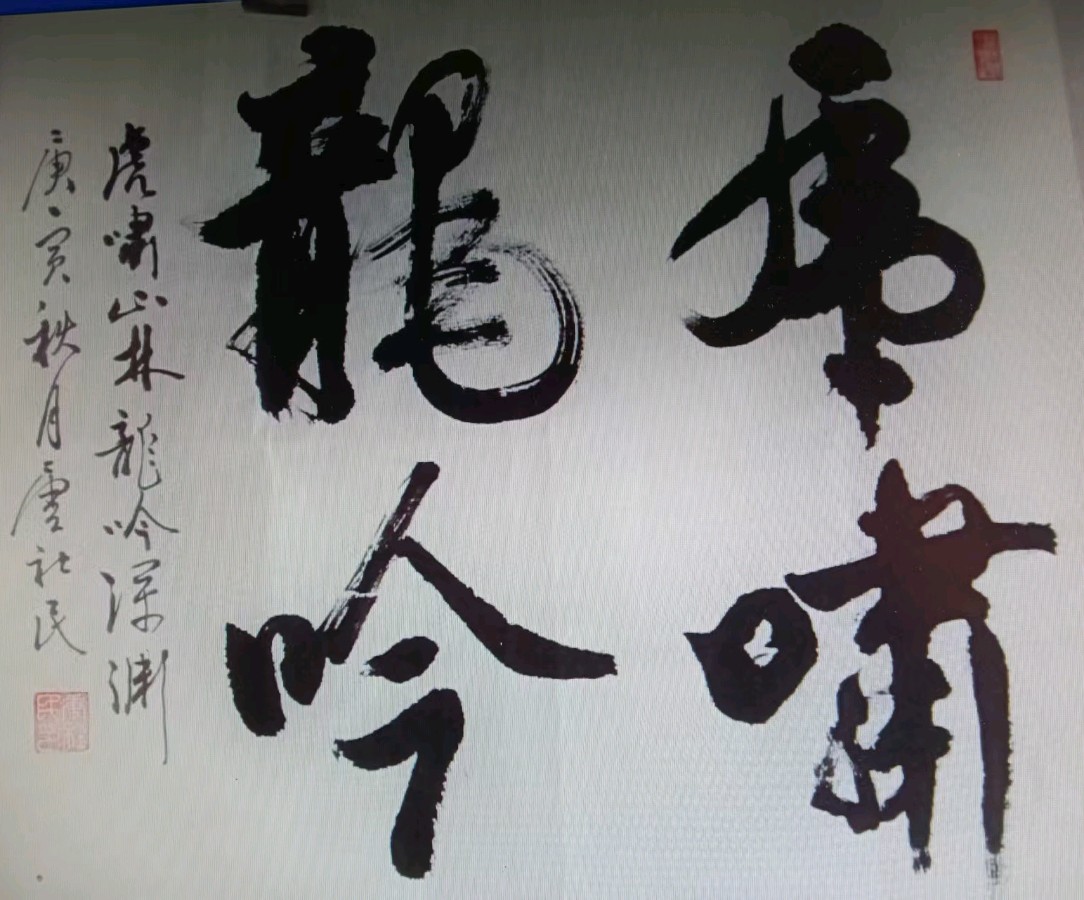 虎嘯
龍吟
虎嘯山林龍吟深淵
庚寅秋月 社民